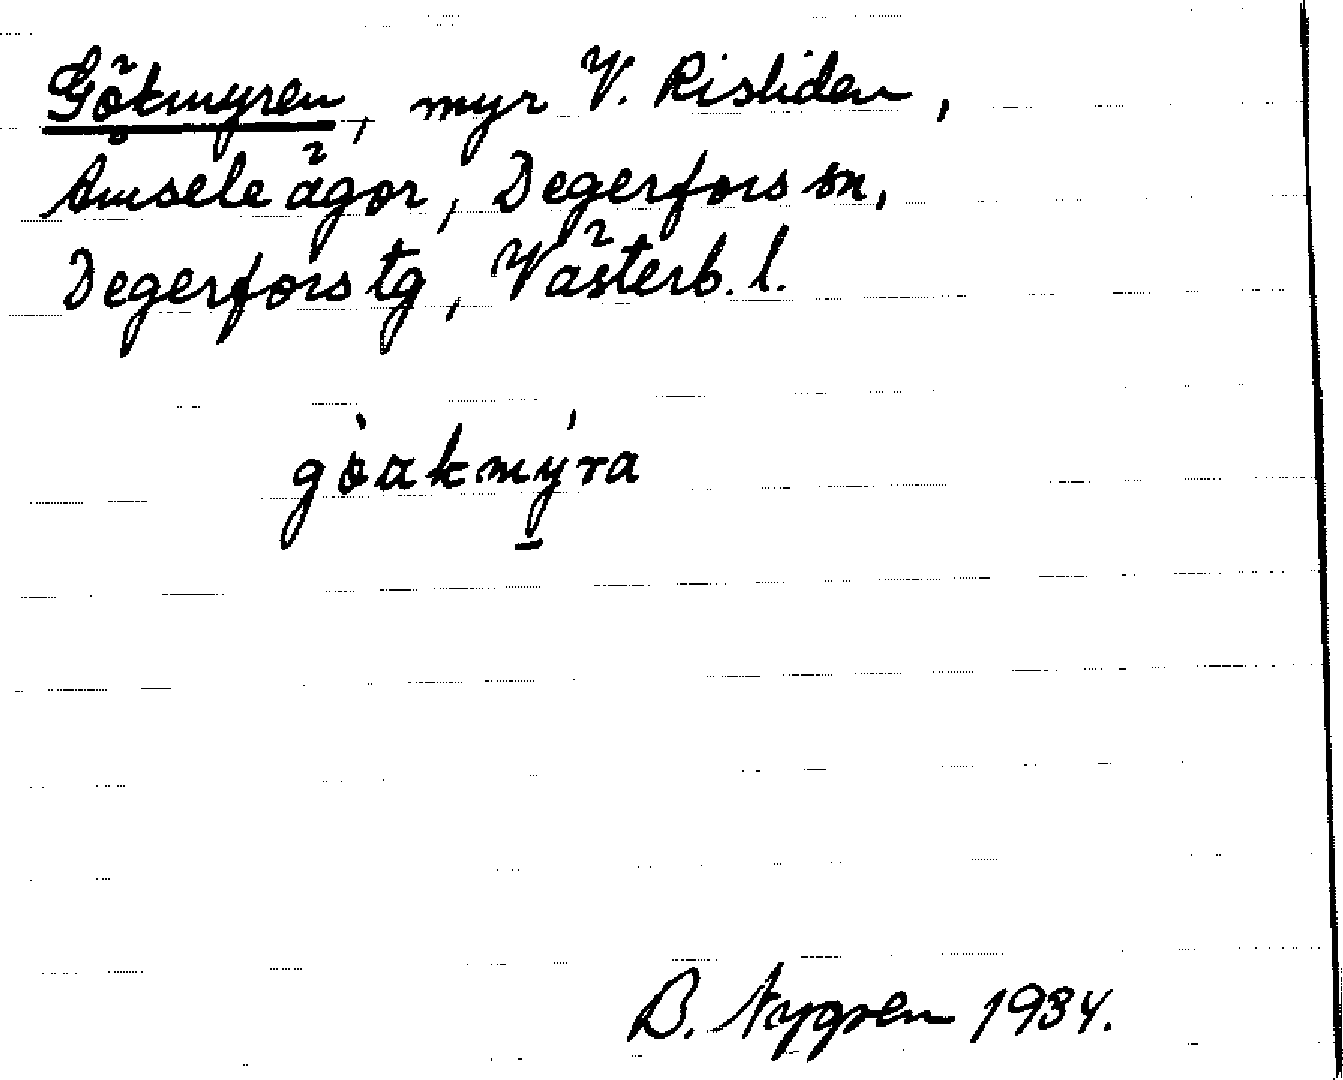 Gökmyren, myr V. Risliden,
Åmsele ägor, Degerfors sn,
Degerfors tg, Västerb. l.
gö̀ɑkmýra
B. Nygren 1934.